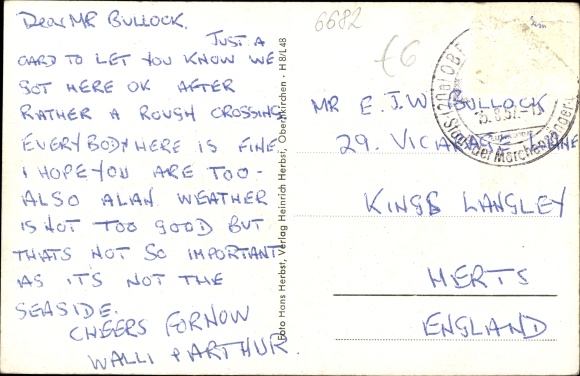 Dear MR BULLOCK.
JUST A
CARD TO LET YOU KNOW WE
GOT HERE OK AFTER
RATHER A ROUGH CROSSING
EVERYBODY HERE IS FINE
I HOPE YOU ARE TOO-
ALSO ALAN. WEATHER
IS NOT TOO GOOD BUT
THATS NOT SO IMPORTANT
AS IT'S NOT THE
SEASIDE.
CHEERS FORNOW
WALLI & ARTHUR.
Foto Hans Herbst, Verlag Heinrich Herbst, Obernkirchen - H8/L48
6682
£6
MR E.J.W. BULLOCK
29. VICARAGE LANE
KINGS LANGLEY
HERTS
ENGLAND